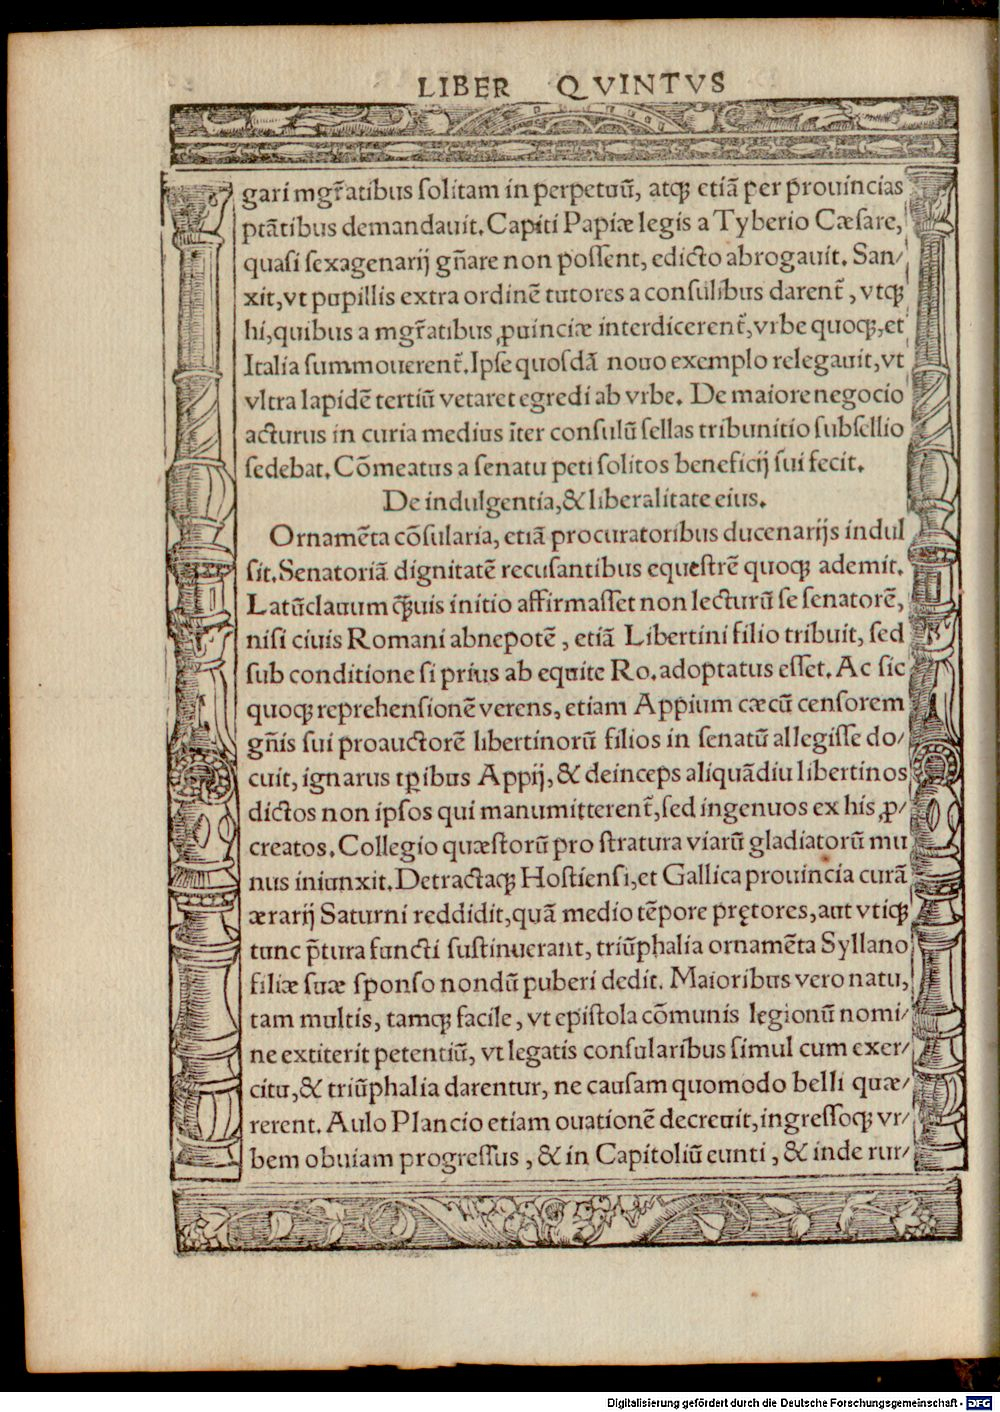 LIBER QVINTVS
gari mgr̃atibus solitam in perpetuũ, atqꝫ etiã per prouincias
ptãtibus demandauit. Capiti Papiæ legis a Tyberio Cæsare,
quasi sexagenarij gñare non possent, edicto abrogauit. San/
xit, vt pupillis extra ordinẽ tutores a consulibus darent̃, vtqꝫ
hi, quibus a mgr̃atibus ꝓuinciæ interdicerent̃, vrbe quoqꝫ, et
Italia summouerent̃. Ipse quosdã nouo exemplo relegauit, vt
vltra lapidẽ tertiũ vetaret egredi ab vrbe. De maiore negocio
acturus in curia medius ĩter consulũ sellas tribunitio subsellio
sedebat. Cõmeatus a senatu peti solitos beneficij sui fecit.
De indulgentia, & liberalitate eius.
Ornamẽta cõsularia, etiã procuratoribus ducenarijs indul
sit. Senatoriã dignitatẽ recusantibus equestrẽ quoqꝫ ademit.
Latũclauum qꝫ̃uis initio affirmasset non lecturũ se senatorẽ,
nisi ciuis Romani abnepotẽ, etiã Libertini filio tribuit, sed
sub conditione si prius ab equite Ro. adoptatus esset. Ac sic
quoqꝫ reprehensionẽ verens, etiam Appium cæcũ censorem
gñis sui proauctorẽ libertinorũ filios in senatũ allegisse do/
cuit, ignarus tꝑibus Appij, & deinceps aliquãdiu libertinos
dictos non ipsos qui manumitterent̃, sed ingenuos ex his ꝓ/
creatos. Collegio quæstorũ pro stratura viarũ gladiatorũ mu
nus iniunxit. Detractaqꝫ Hostiensi, et Gallica prouincia curã
ærarij Saturni reddidit, quã medio tẽpore prętores, aut vtiqꝫ
tunc p̃tura functi sustinuerant, triũphalia ornamẽta Syllano
filiæ suæ sponso nondũ puberi dedit. Maioribus vero natu,
tam multis, tamqꝫ facile, vt epistola cõmunis legionũ nomi/
ne extiterit petentiũ, vt legatis consularibus simul cum exer/
citu, & triũphalia darentur, ne causam quomodo belli quæ/
rerent. Aulo Plancio etiam ouationẽ decreuit, ingressoqꝫ vr/
bem obuiam progressus, & in Capitoliũ eunti, & inde rur/
Digitalisierung gefördert durch die Deutsche Forschungsgemeinschaft - DFG